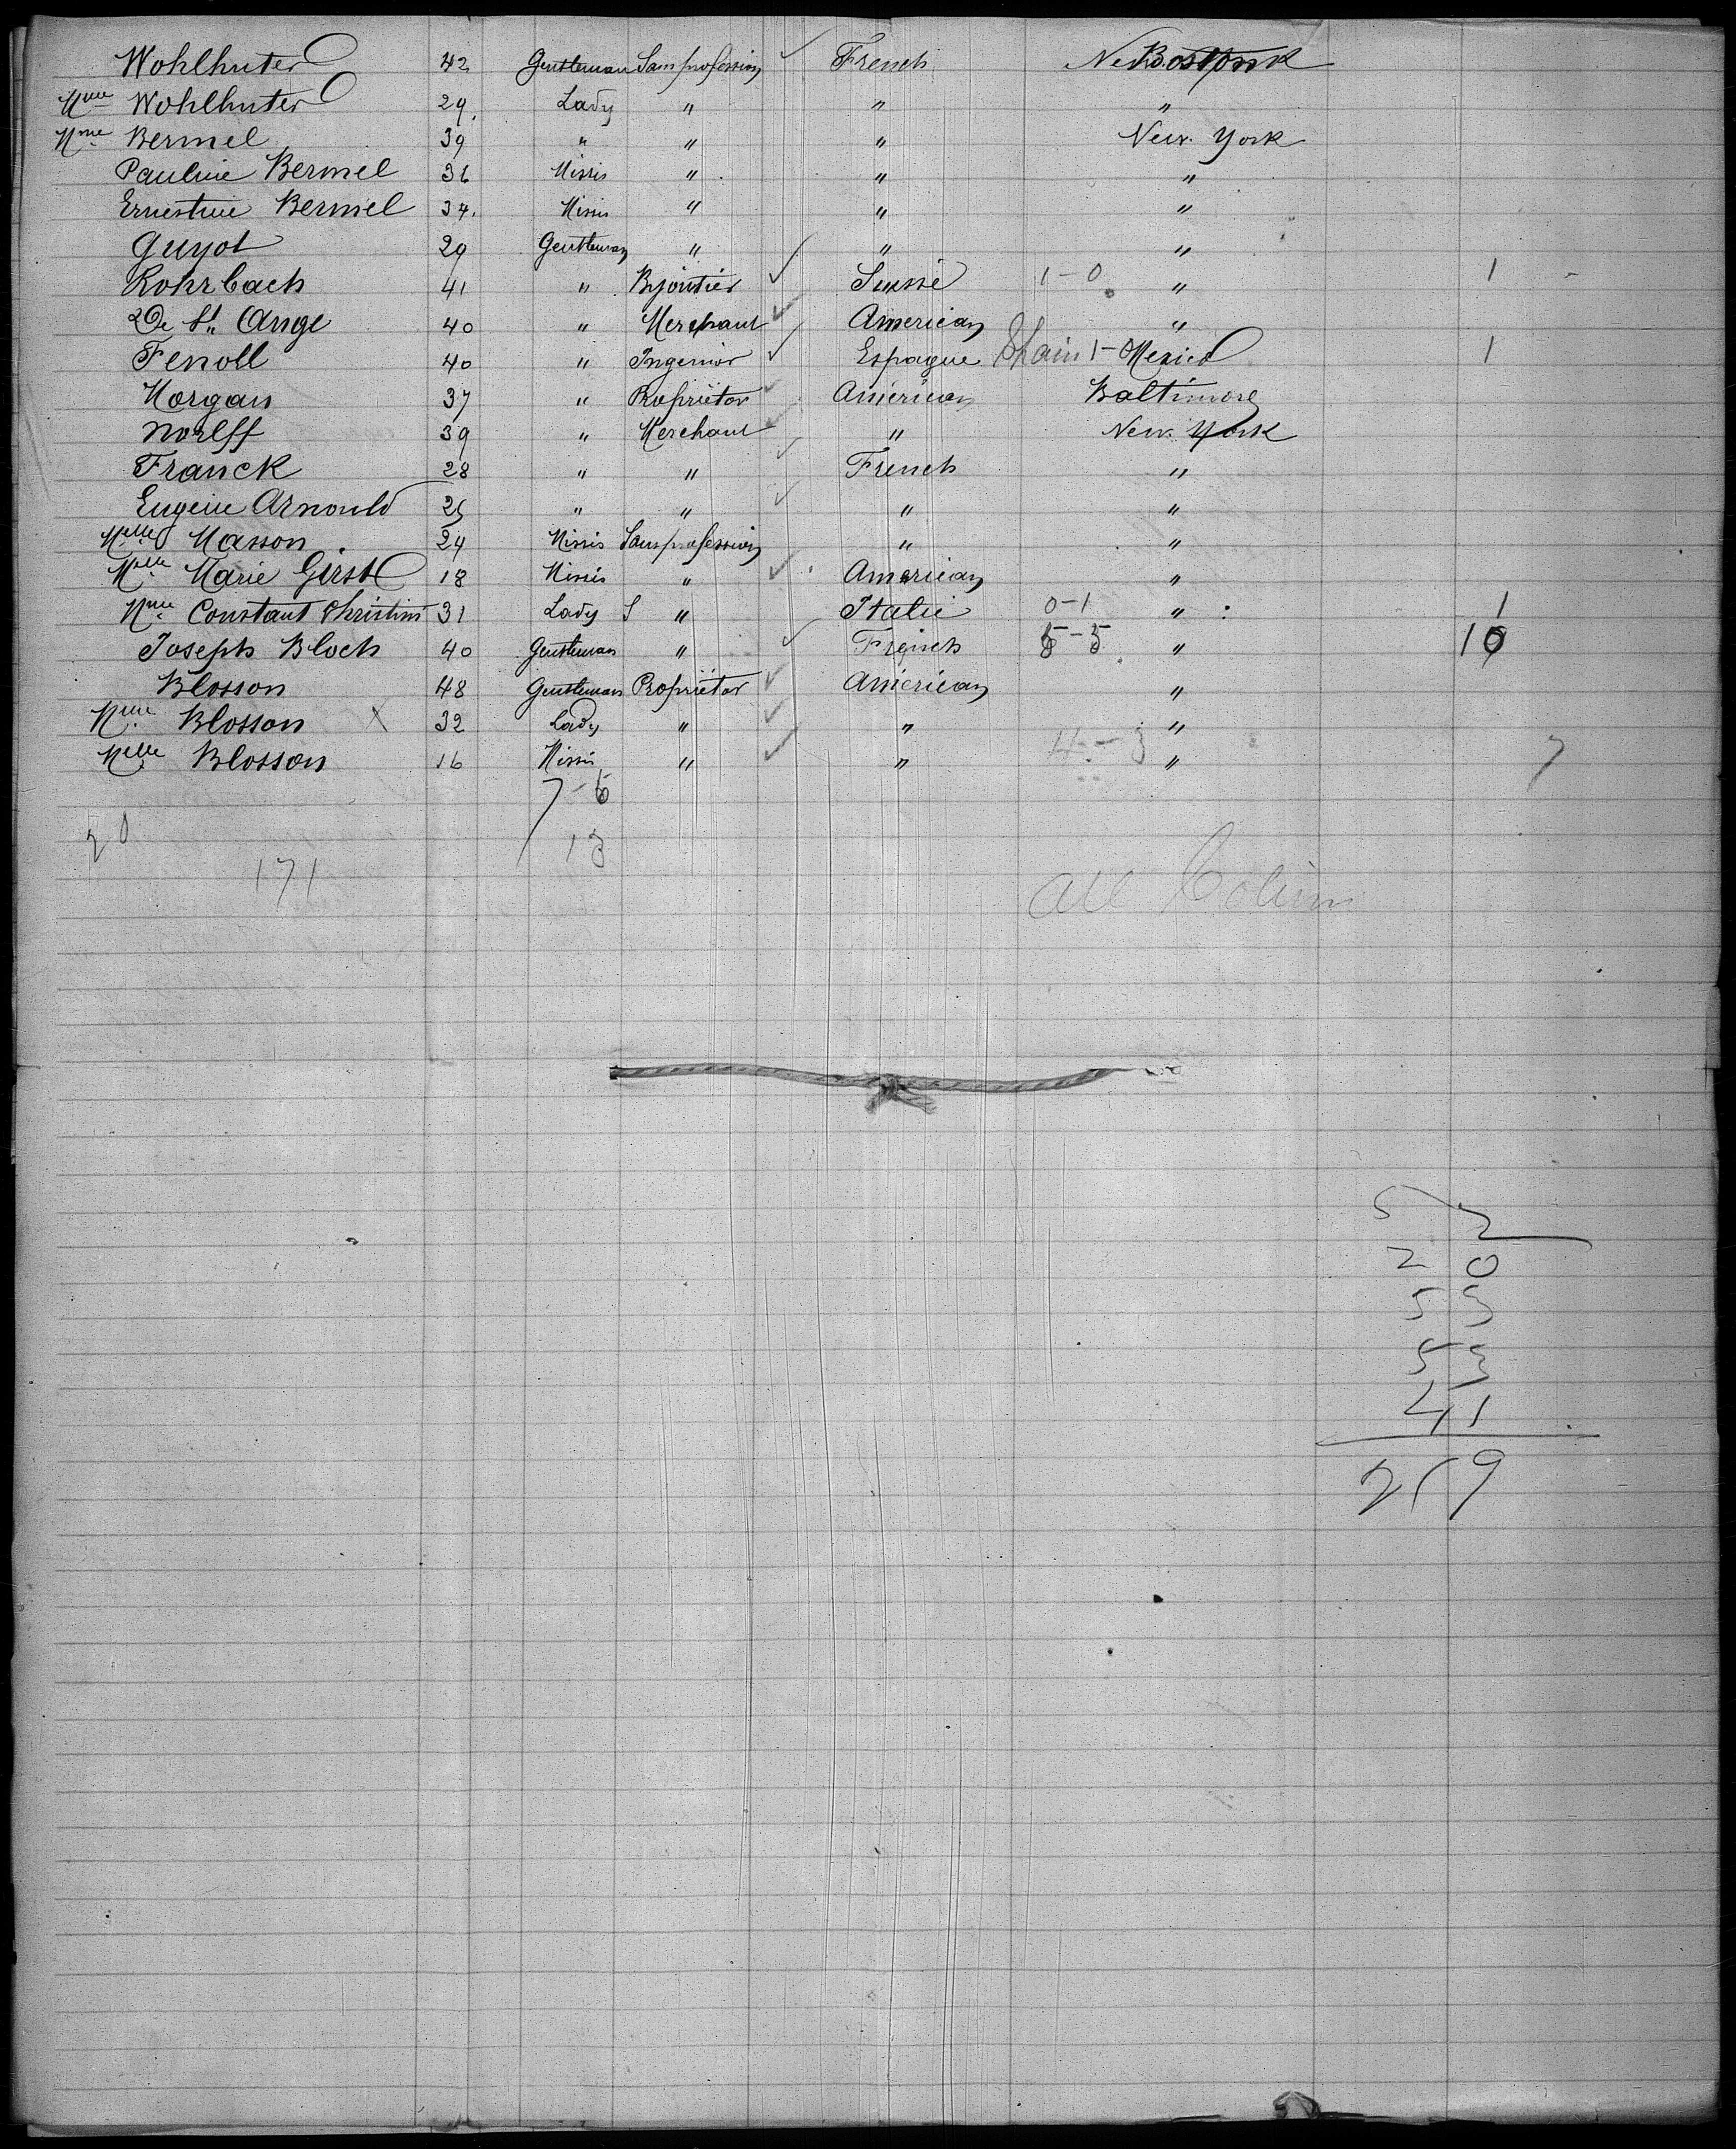 Wohlhuter 42 Gentleman Sans profession French
Mme Wohlhuter 29 Lady " " "
Mme Bermel 39 " " " New York
Pauline Bermel 36 Missis " " "
Ernestine Bermel 34 Missis " " "
Guyot 29 Gentleman " " "
Rohrbach 41 " Bijoutier Suisse 1-0 " 1
De St Ange 40 " Merchant American "
Fenoll 40 " Ingenior Espagne Spain 1- Mexico 1
Morgan 37 " Propriëtor American Baltimore
Norlff 39 " Merchant " New York
Franck 28 " " French "
Eugène Arnould 25 " " " "
Melle Masson 24 Missis Sans profession " "
Melle Marie Girst 18 Missis " American "
Mme Constant Christini 31 Lady S " Italie 0-1 " 1
Joseph Bloch 40 Gentleman " French 5-5 " 10
Blosson 48 Gentleman Propriëtor American "
Mme Blosson X 32 Lady " " "
Melle Blosson 16 Missis " " 4-3 " 7
7-6
20 13
171
All
52
20
55
53
41
219